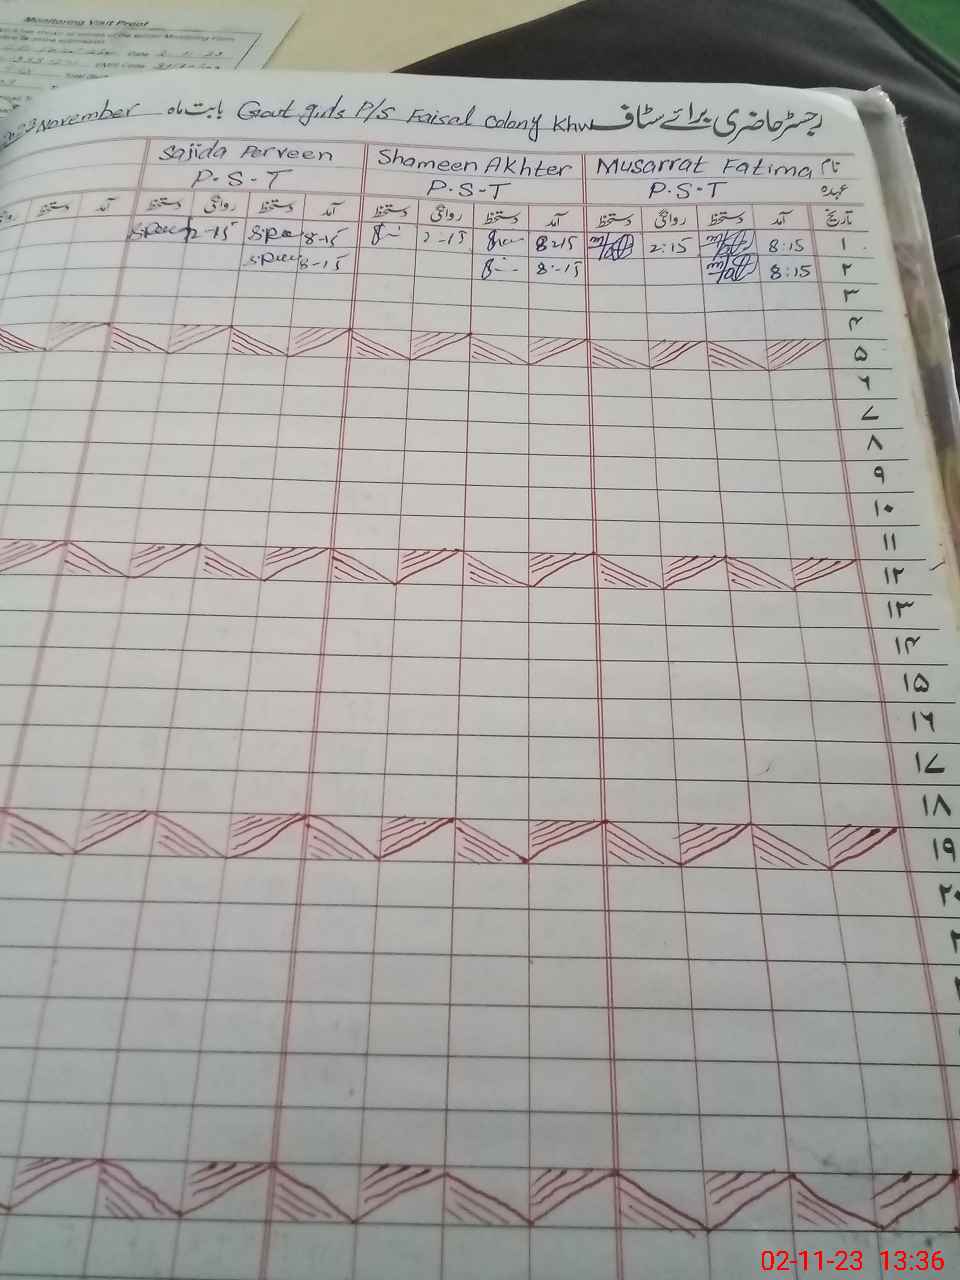 Monitoring Visit Proof
رجسٹر حاضری برائے سٹاف Govt girls P/S Faisal Colony Khw بابت ماہ November 2023
نام Musarrat Fatima Shameen Akhter Sajida Perveen
عہدہ P.S.T P.S.T P.S.T
تاریخ آمد دستخط روانگی دستخط آمد دستخط روانگی دستخط آمد دستخط روانگی دستخط آمد دستخط
۱ 8:15 2:15 8:15 2-15 8-15 2-15
۲ 8:15 8:-15 8-15
۳
۴
۵
۶
۷
۸
۹
۱۰
۱۱
۱۲
۱۳
۱۴
۱۵
۱۶
۱۷
۱۸
۱۹
۲۰
02-11-23 13:36